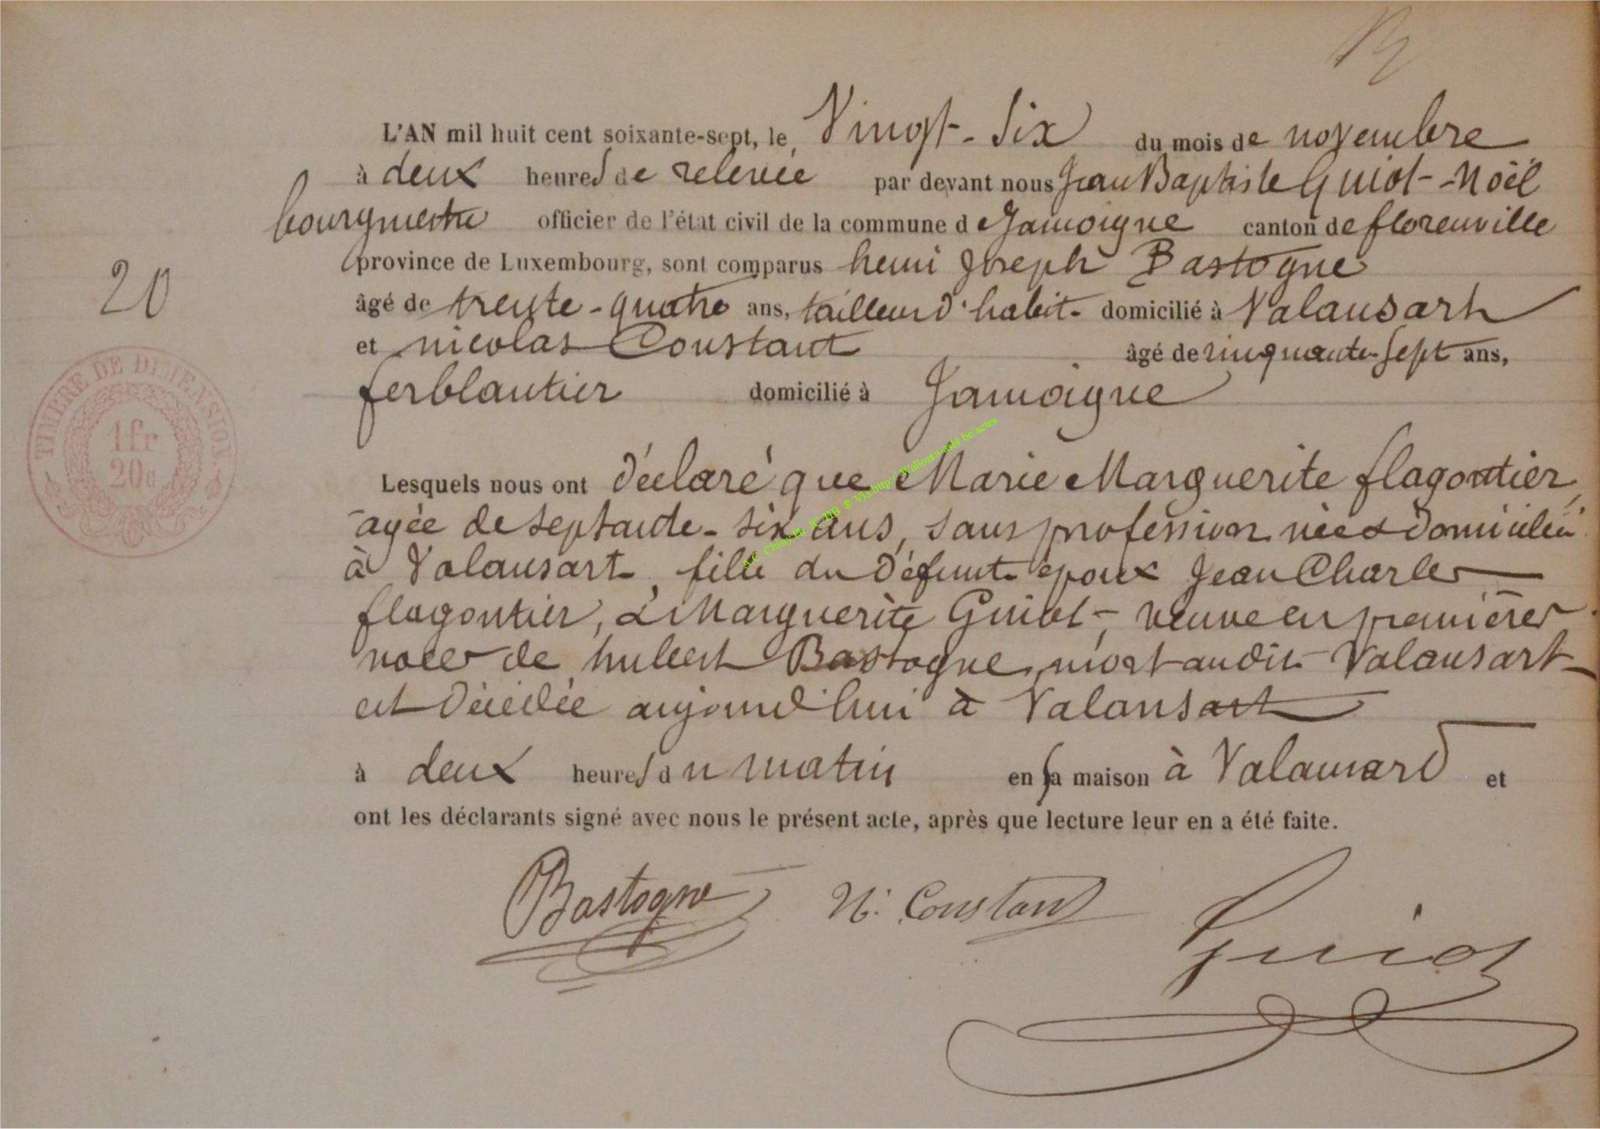 L'AN mil huit cent soixante-sept, le Vingt-Six du mois de novembre
à deux heures de relevée par devant nous Jean Baptiste Guiot-Noël
bourgmestre officier de l'état civil de la commune de Jamoigne canton de florenville
province de Luxembourg, sont comparus henri Joseph Bastogne
âgé de trente-quatre ans, tailleur d'habit domicilié à Valansart
et nicolas Constant âgé de cinquante-sept ans,
ferblantier domicilié à Jamoigne
20
TIMBRE DE DIMENSION
1fr
20c
Lesquels nous ont déclaré que Marie Marguerite flagontier,
agée de septante-six ans, sans profession née & domiciliée
à Valansart, fille du défunt époux Jean Charles
flagontier, & Marguerite Guiot, veuve en premières
noces de hubert Bastogne, mort audit Valansart
est décédée aujourd'hui à Valansart
à deux heures du matin en sa maison à Valansard et
ont les déclarants signé avec nous le présent acte, après que lecture leur en a été faite.
Bastogne N. Constant Guiot